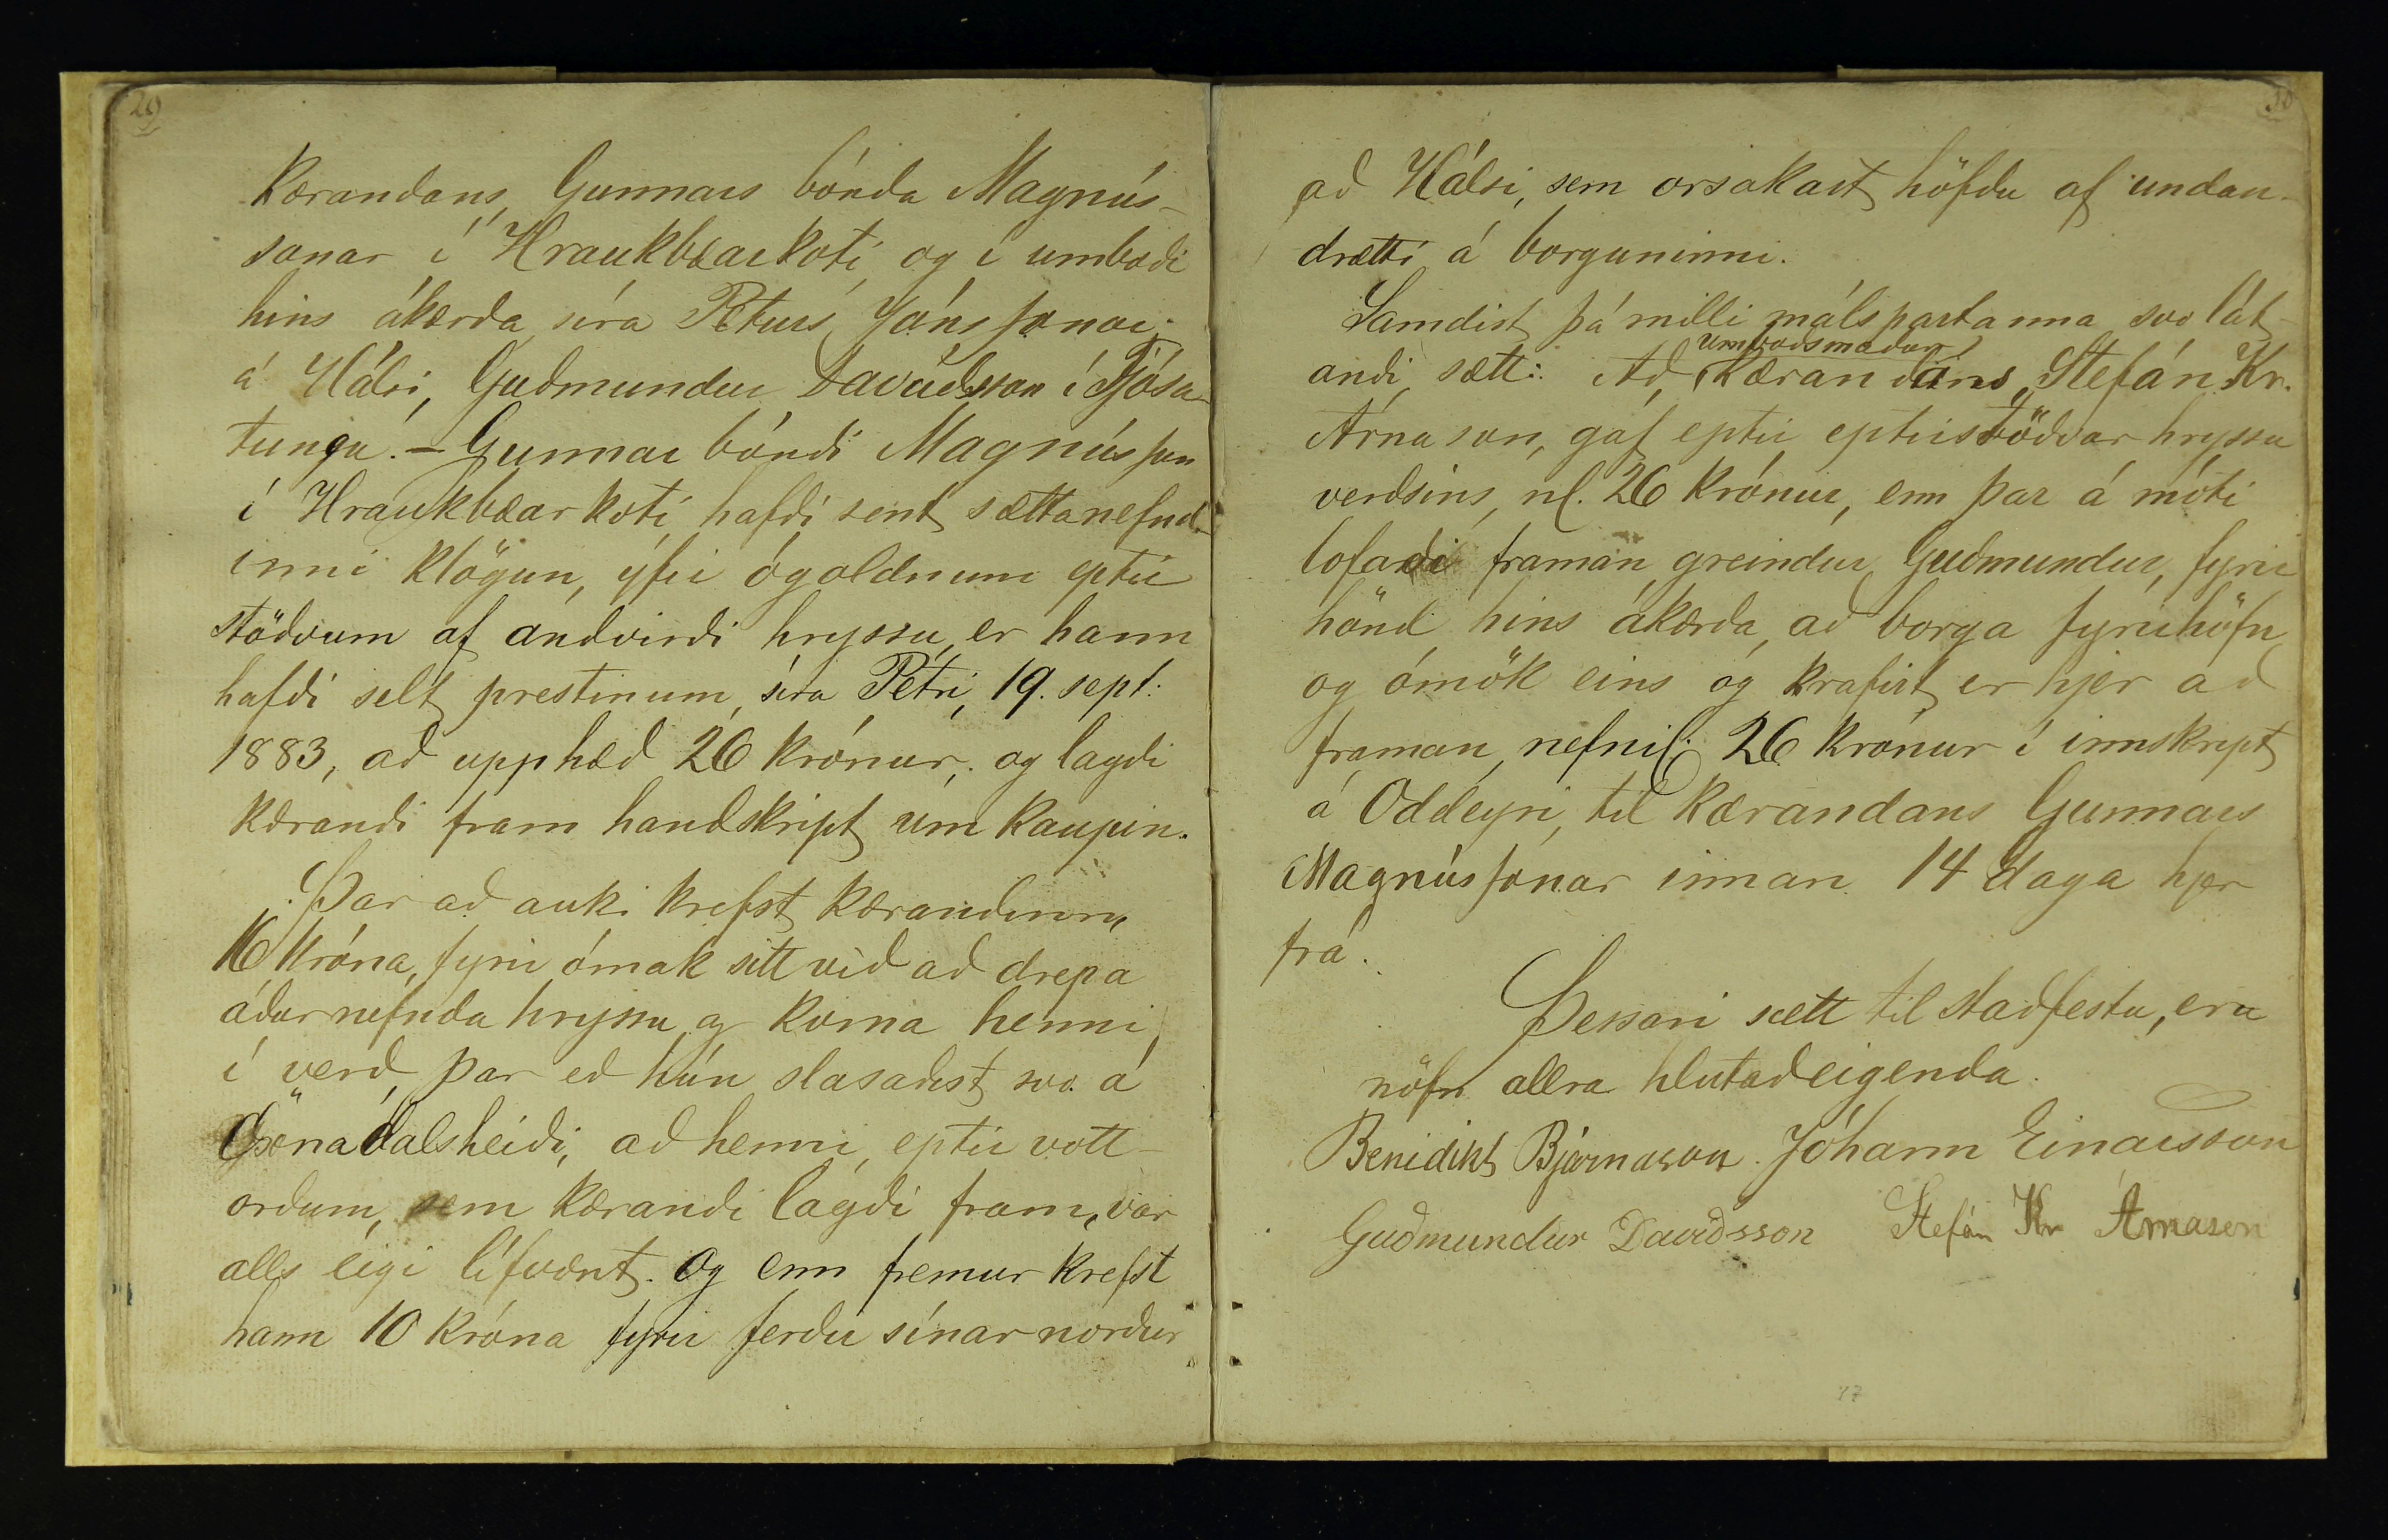 29
kærandans, Gunnars bónda Magnús-
sonar í Hraukbæarkoti og í umboði
hins ákærða síra Péturs Jónssonar
á Hálsi, Guðmundur Davíðsson í Fjósa-
tungu. – Gunnar bóndi Magnússon
í Hraukbæarkoti hafði sent sættanefnd-
inni klögun, yfir ógoldnum eptir
stöðvum af andvirði hryssu, er hann
hafði selt prestinum, síra Pétri, 19. sept:
1883, að upphæð 26 krónur; og lagði
kærandi fram handskript um kaupin.
Þar að auki krefst kærandinn,
16 króna, fyrir ómak sitt við að drepa
áður nefnda hryssu og koma henni
í verð, þar eð hún slasaðist svo á
Öxnadalsheiði, að henni, eptir vott-
orðum, sem kærandi lagði fram, var
alls eigi lífvænt. Og enn fremur krefst
hann 10 króna fyrir ferðir sínar norður
30
að Hálsi, sem orsakast höfðu af undan-
drætti á borguninni.
Samdist þá milli málspartanna svo lát-
umboðsmaður
andi sætt: Að, kærandans, Stefán Kr.
Árnason, gaf eptir eptirstöðvar hryssu
verðsins, nl. 26 krónur, enn þar á móti
lofaði framan greindur Guðmundur, fyrir
hönd hins ákærða, að borga fyrirhöfn
og ómök eins og krafist er hjer að
framan, nefnil: 26 krónur í innskript
á Oddeyri, til kærandans Gunnars
Magnússonar innan 14 daga hjer
frá.
Þessari sætt til staðfestu, eru
nöfn allra hlutaðeigenda.
Benidikt Bjarnason. Jóhann Einarsson
Guðmundur Davíðsson Stefán Kr Árnason
47